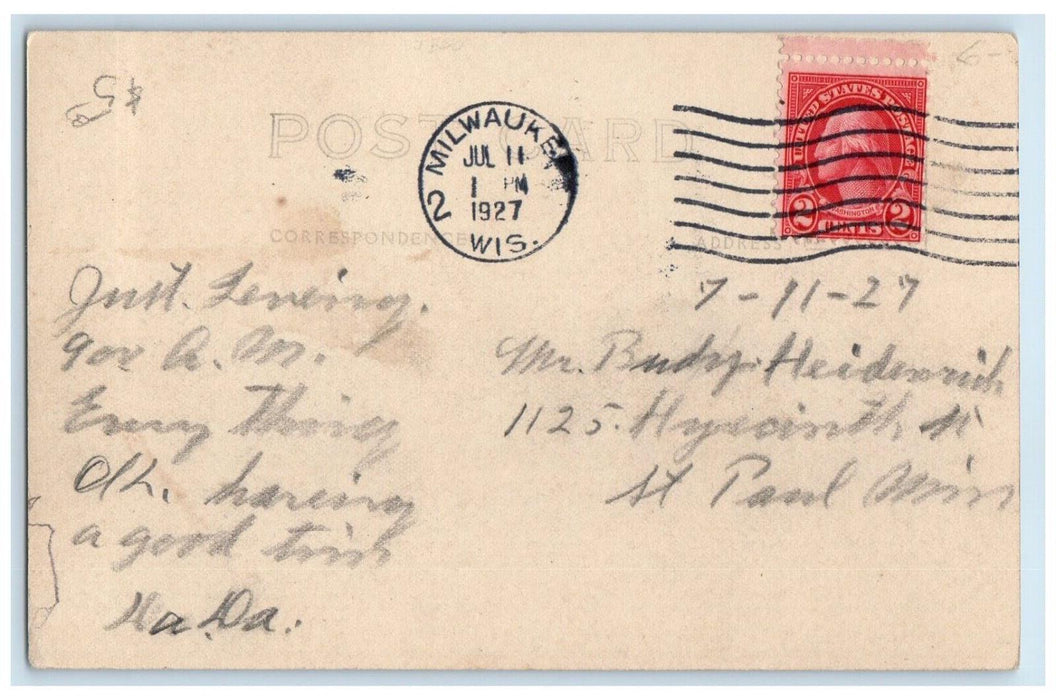 $5
POST CARD
MILWAUKEE
JUL 11
1 PM
1927
2
WIS.
UNITED STATES POSTAGE
WASHINGTON
2 CENTS 2
CORRESPONDENCE
ADDRESS
7-11-27
Just. Leveing.
900 A. M.
Every Thing
Ok. haveing
a good time
Da.
Mr. Rudy Heidenrich
1125. Hyacinth St
St Paul Minn